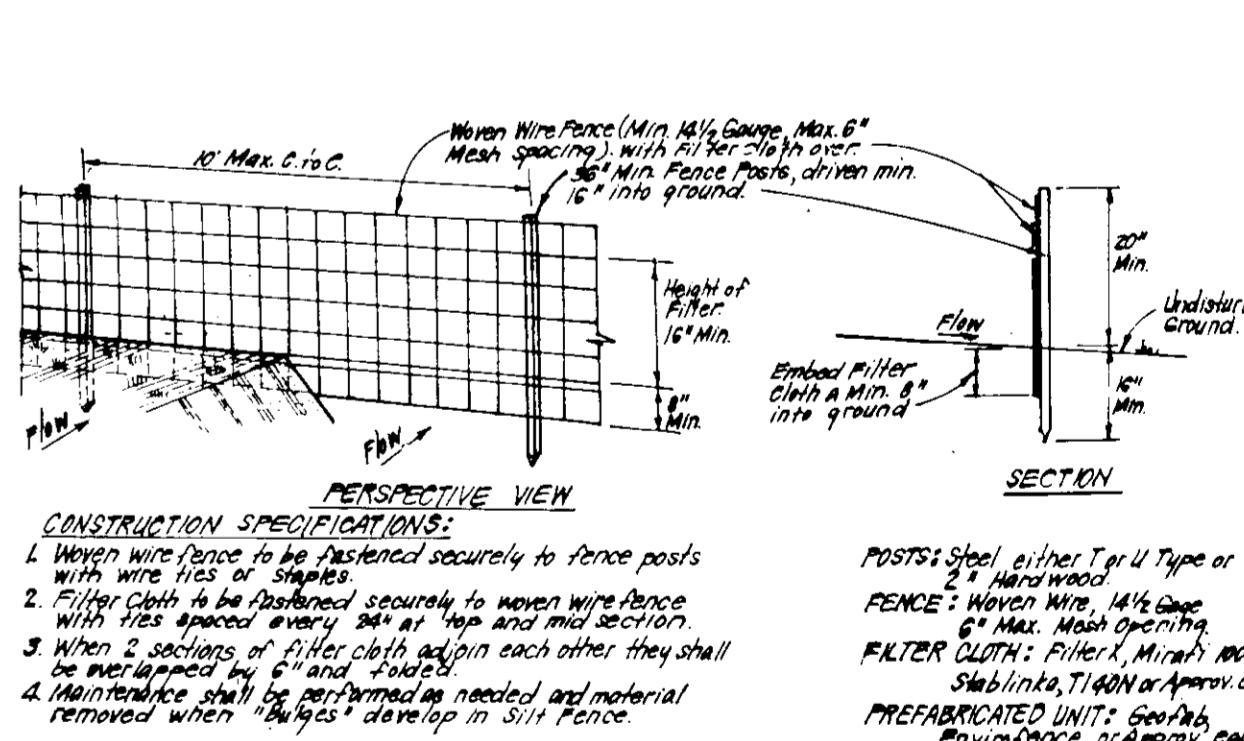 Woven Wire Fence (Min. 14½ Gauge, Max. 6"
Mesh Spacing) with Filter cloth over.
36" Min. Fence Posts, driven min.
16" into ground.
10' Max. C. to C.
Height of
Filter
16" Min.
8"
Min.
Flow
Flow
PERSPECTIVE VIEW
20"
Min.
Undistur
Ground.
Flow
Embed Filter
Cloth a Min. 8"
into ground
16"
Min.
SECTION
CONSTRUCTION SPECIFICATIONS:
1. Woven wire fence to be fastened securely to fence posts
with wire ties or staples.
2. Filter Cloth to be fastened securely to woven wire fence
with ties spaced every 24" at top and mid section.
3. When 2 sections of filter cloth adjoin each other they shall
be overlapped by 6" and folded.
4. Maintenance shall be performed as needed and material
removed when "Bulges" develop in Silt Fence.
POSTS: Steel either T or U Type or
2" Hardwood.
FENCE: Woven Wire, 14½ Gage
6" Max. Mesh Opening.
FILTER CLOTH: Filter X, Mirafi 100
Stablinka, T140N or Approv.
PREFABRICATED UNIT: Geofab,
Envirofence, or Approv.